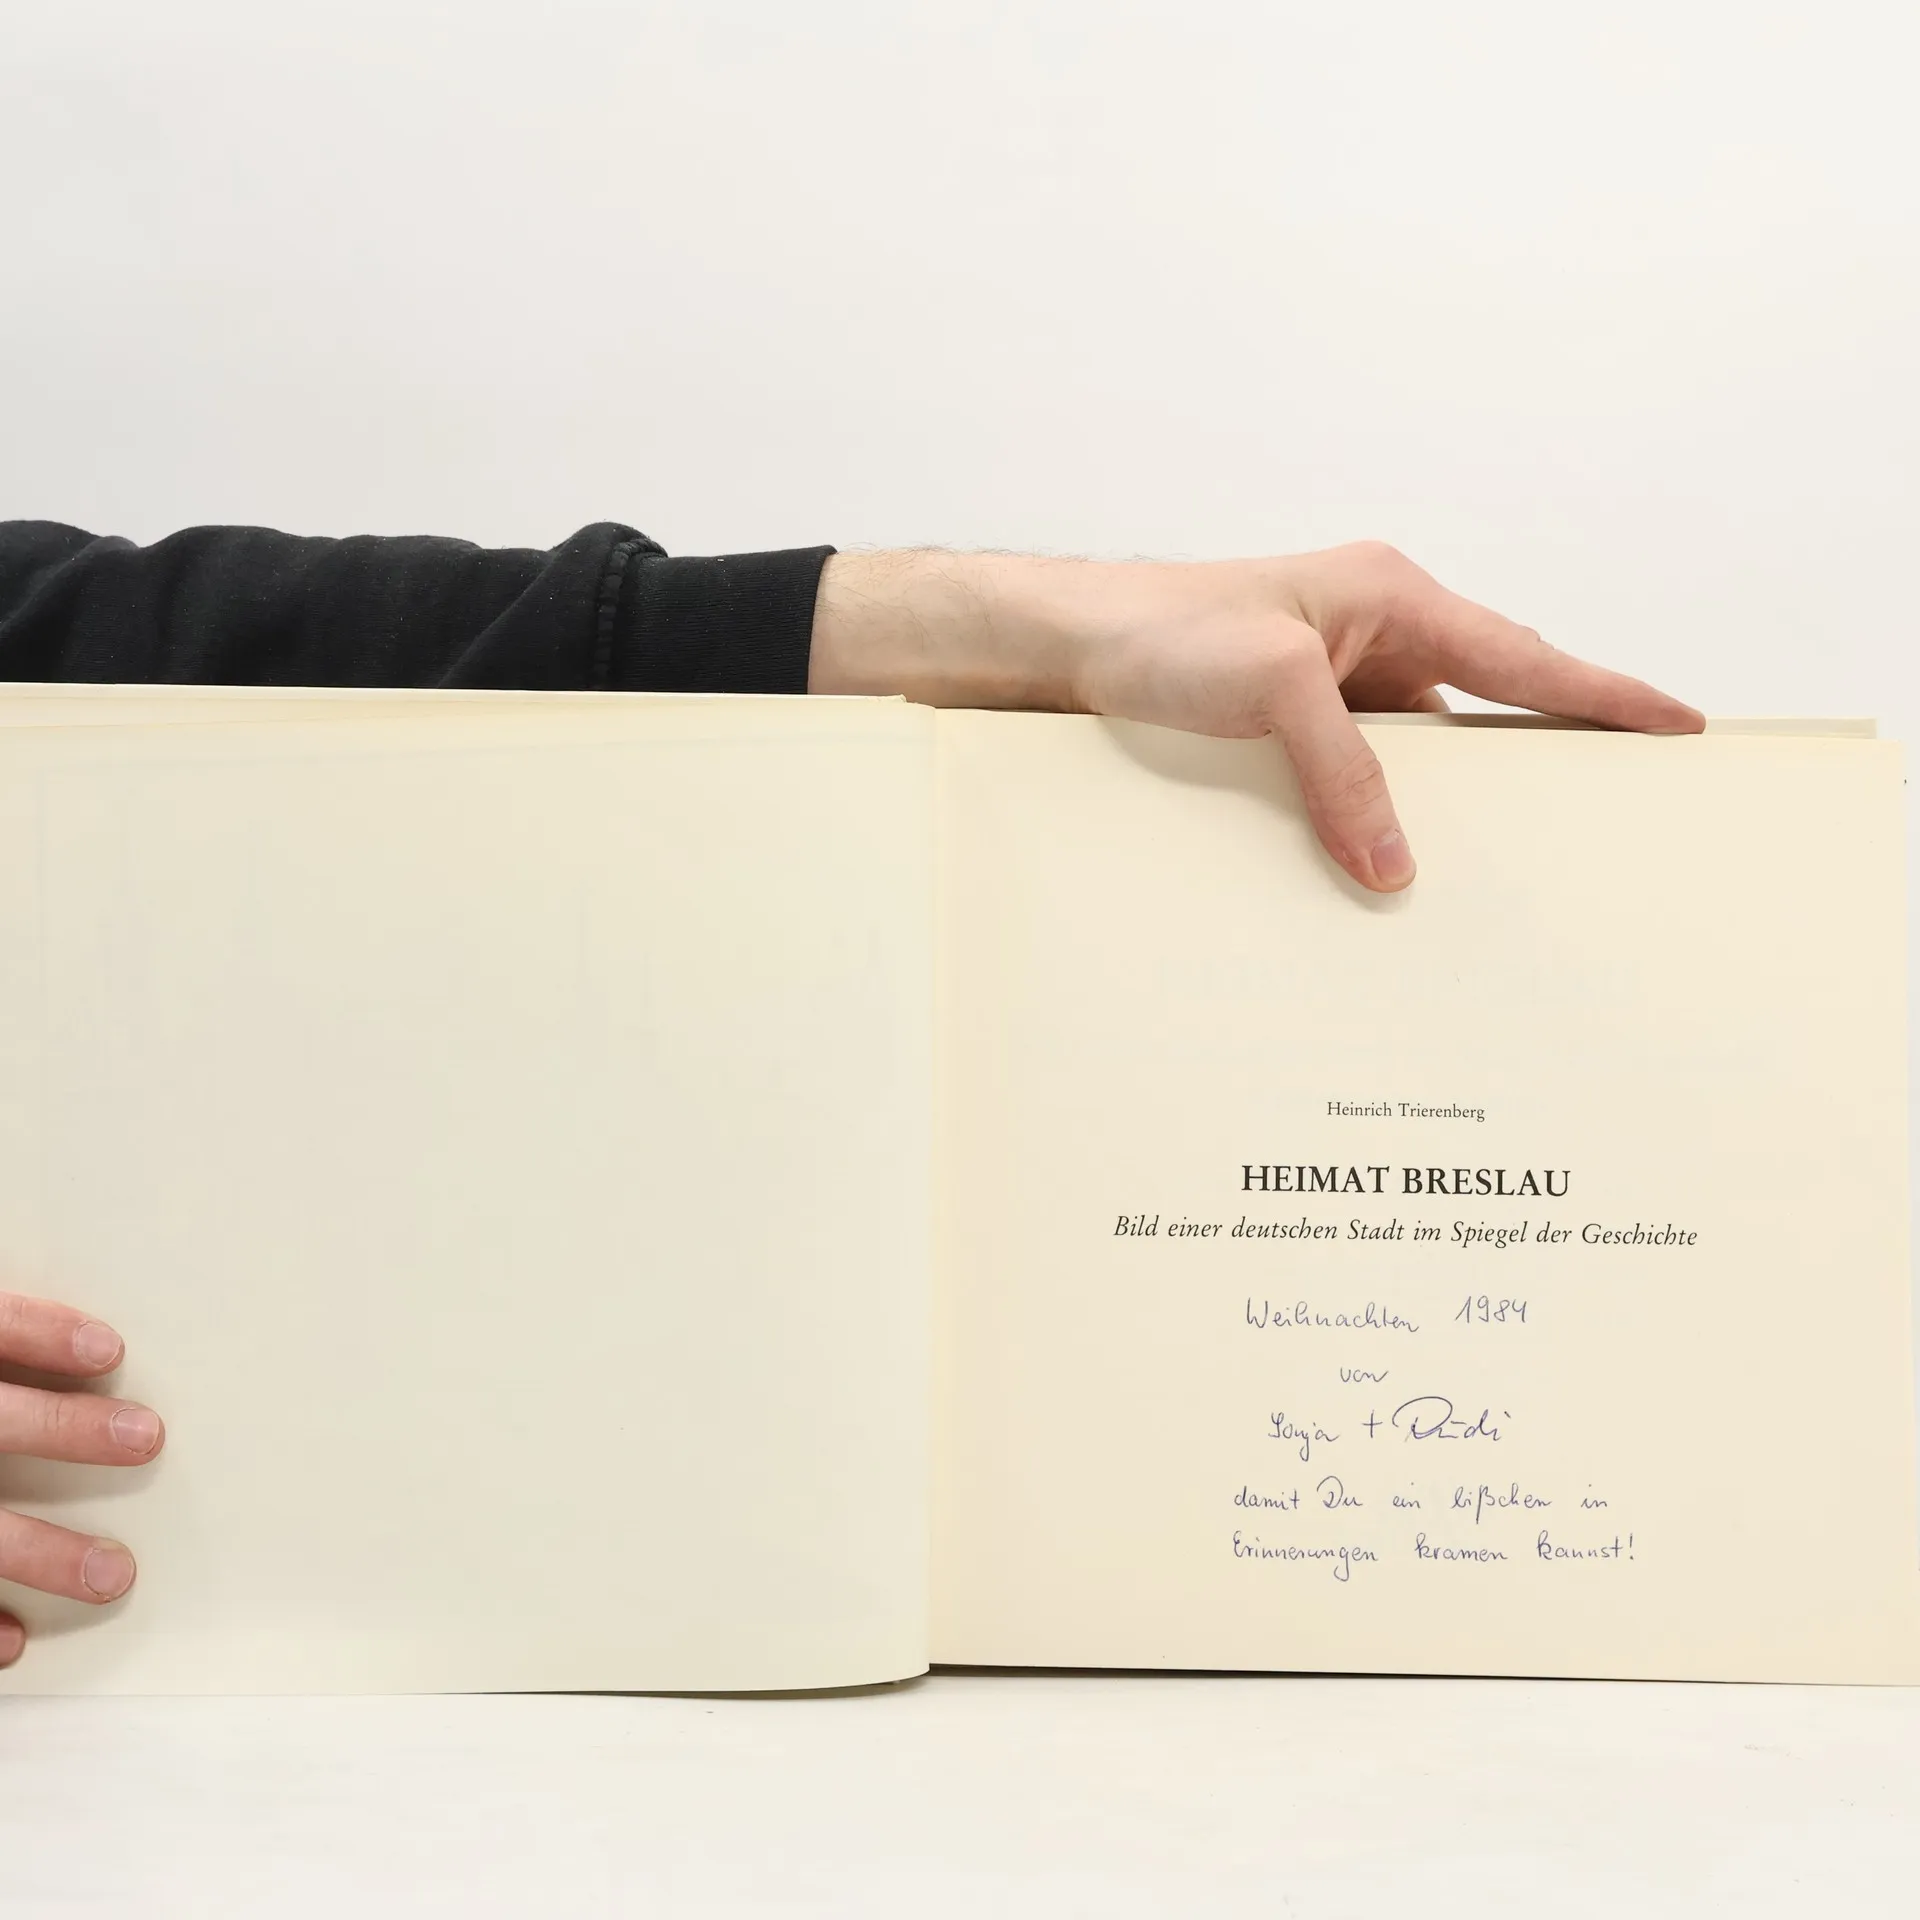 Heinrich Trierenberg
HEIMAT BRESLAU
Bild einer deutschen Stadt im Spiegel der Geschichte
Weihnachten 1984
von
Sonja + Rüdi
damit Du ein bißchen in
Erinnerungen kramen kannst!